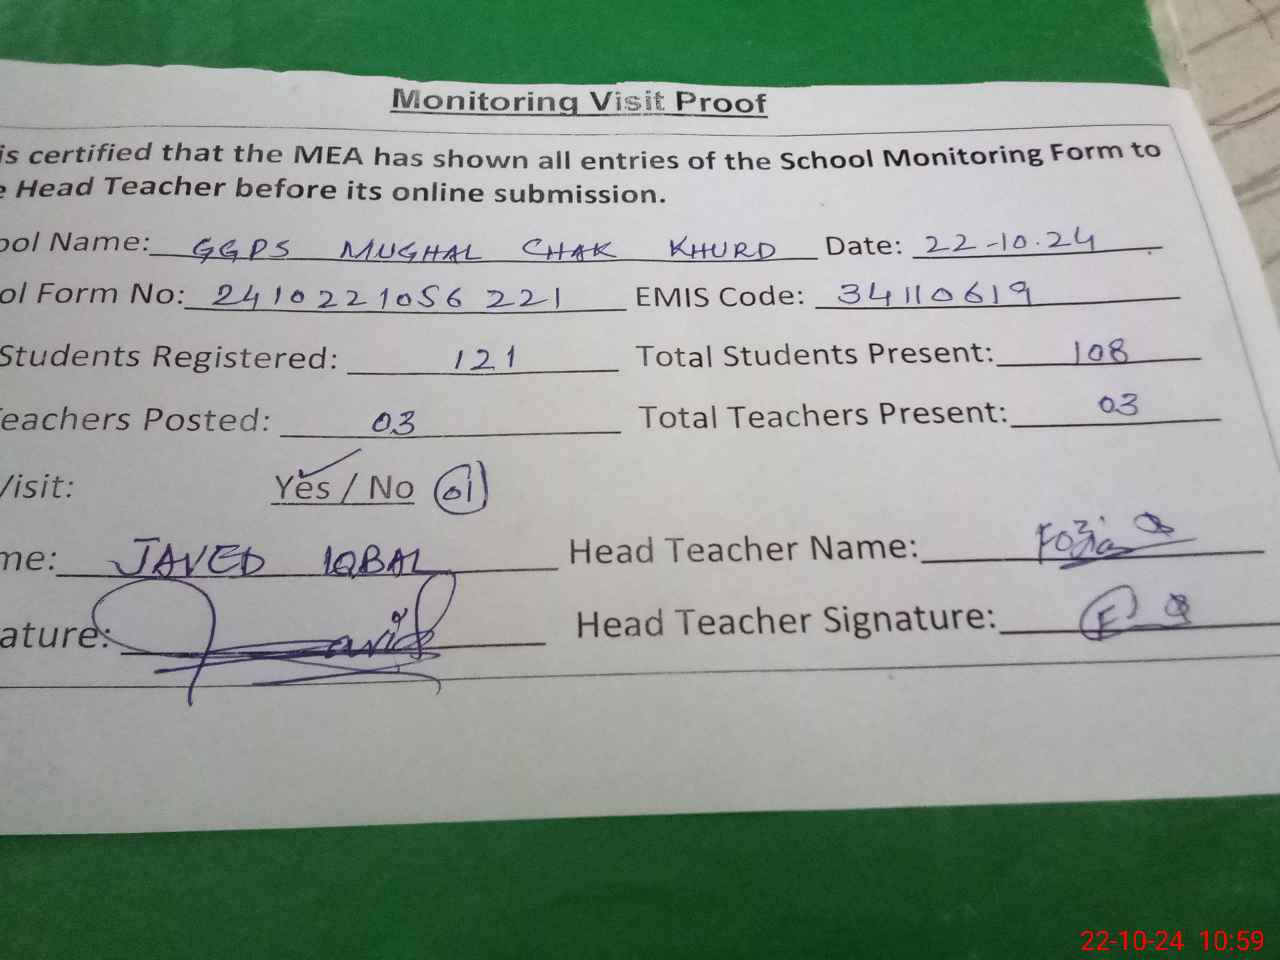 Monitoring Visit Proof
is certified that the MEA has shown all entries of the School Monitoring Form to
e Head Teacher before its online submission.
ool Name: GGPS MUGHAL CHAK KHURD Date: 22-10.24
ol Form No: 2410221056 221 EMIS Code: 34110619
Students Registered: 121 Total Students Present: 108
eachers Posted: 03 Total Teachers Present: 03
Visit: Yes / No 01
me: JAVED IQBAL Head Teacher Name: Fozia
ature: Javid Head Teacher Signature:
22-10-24 10:59